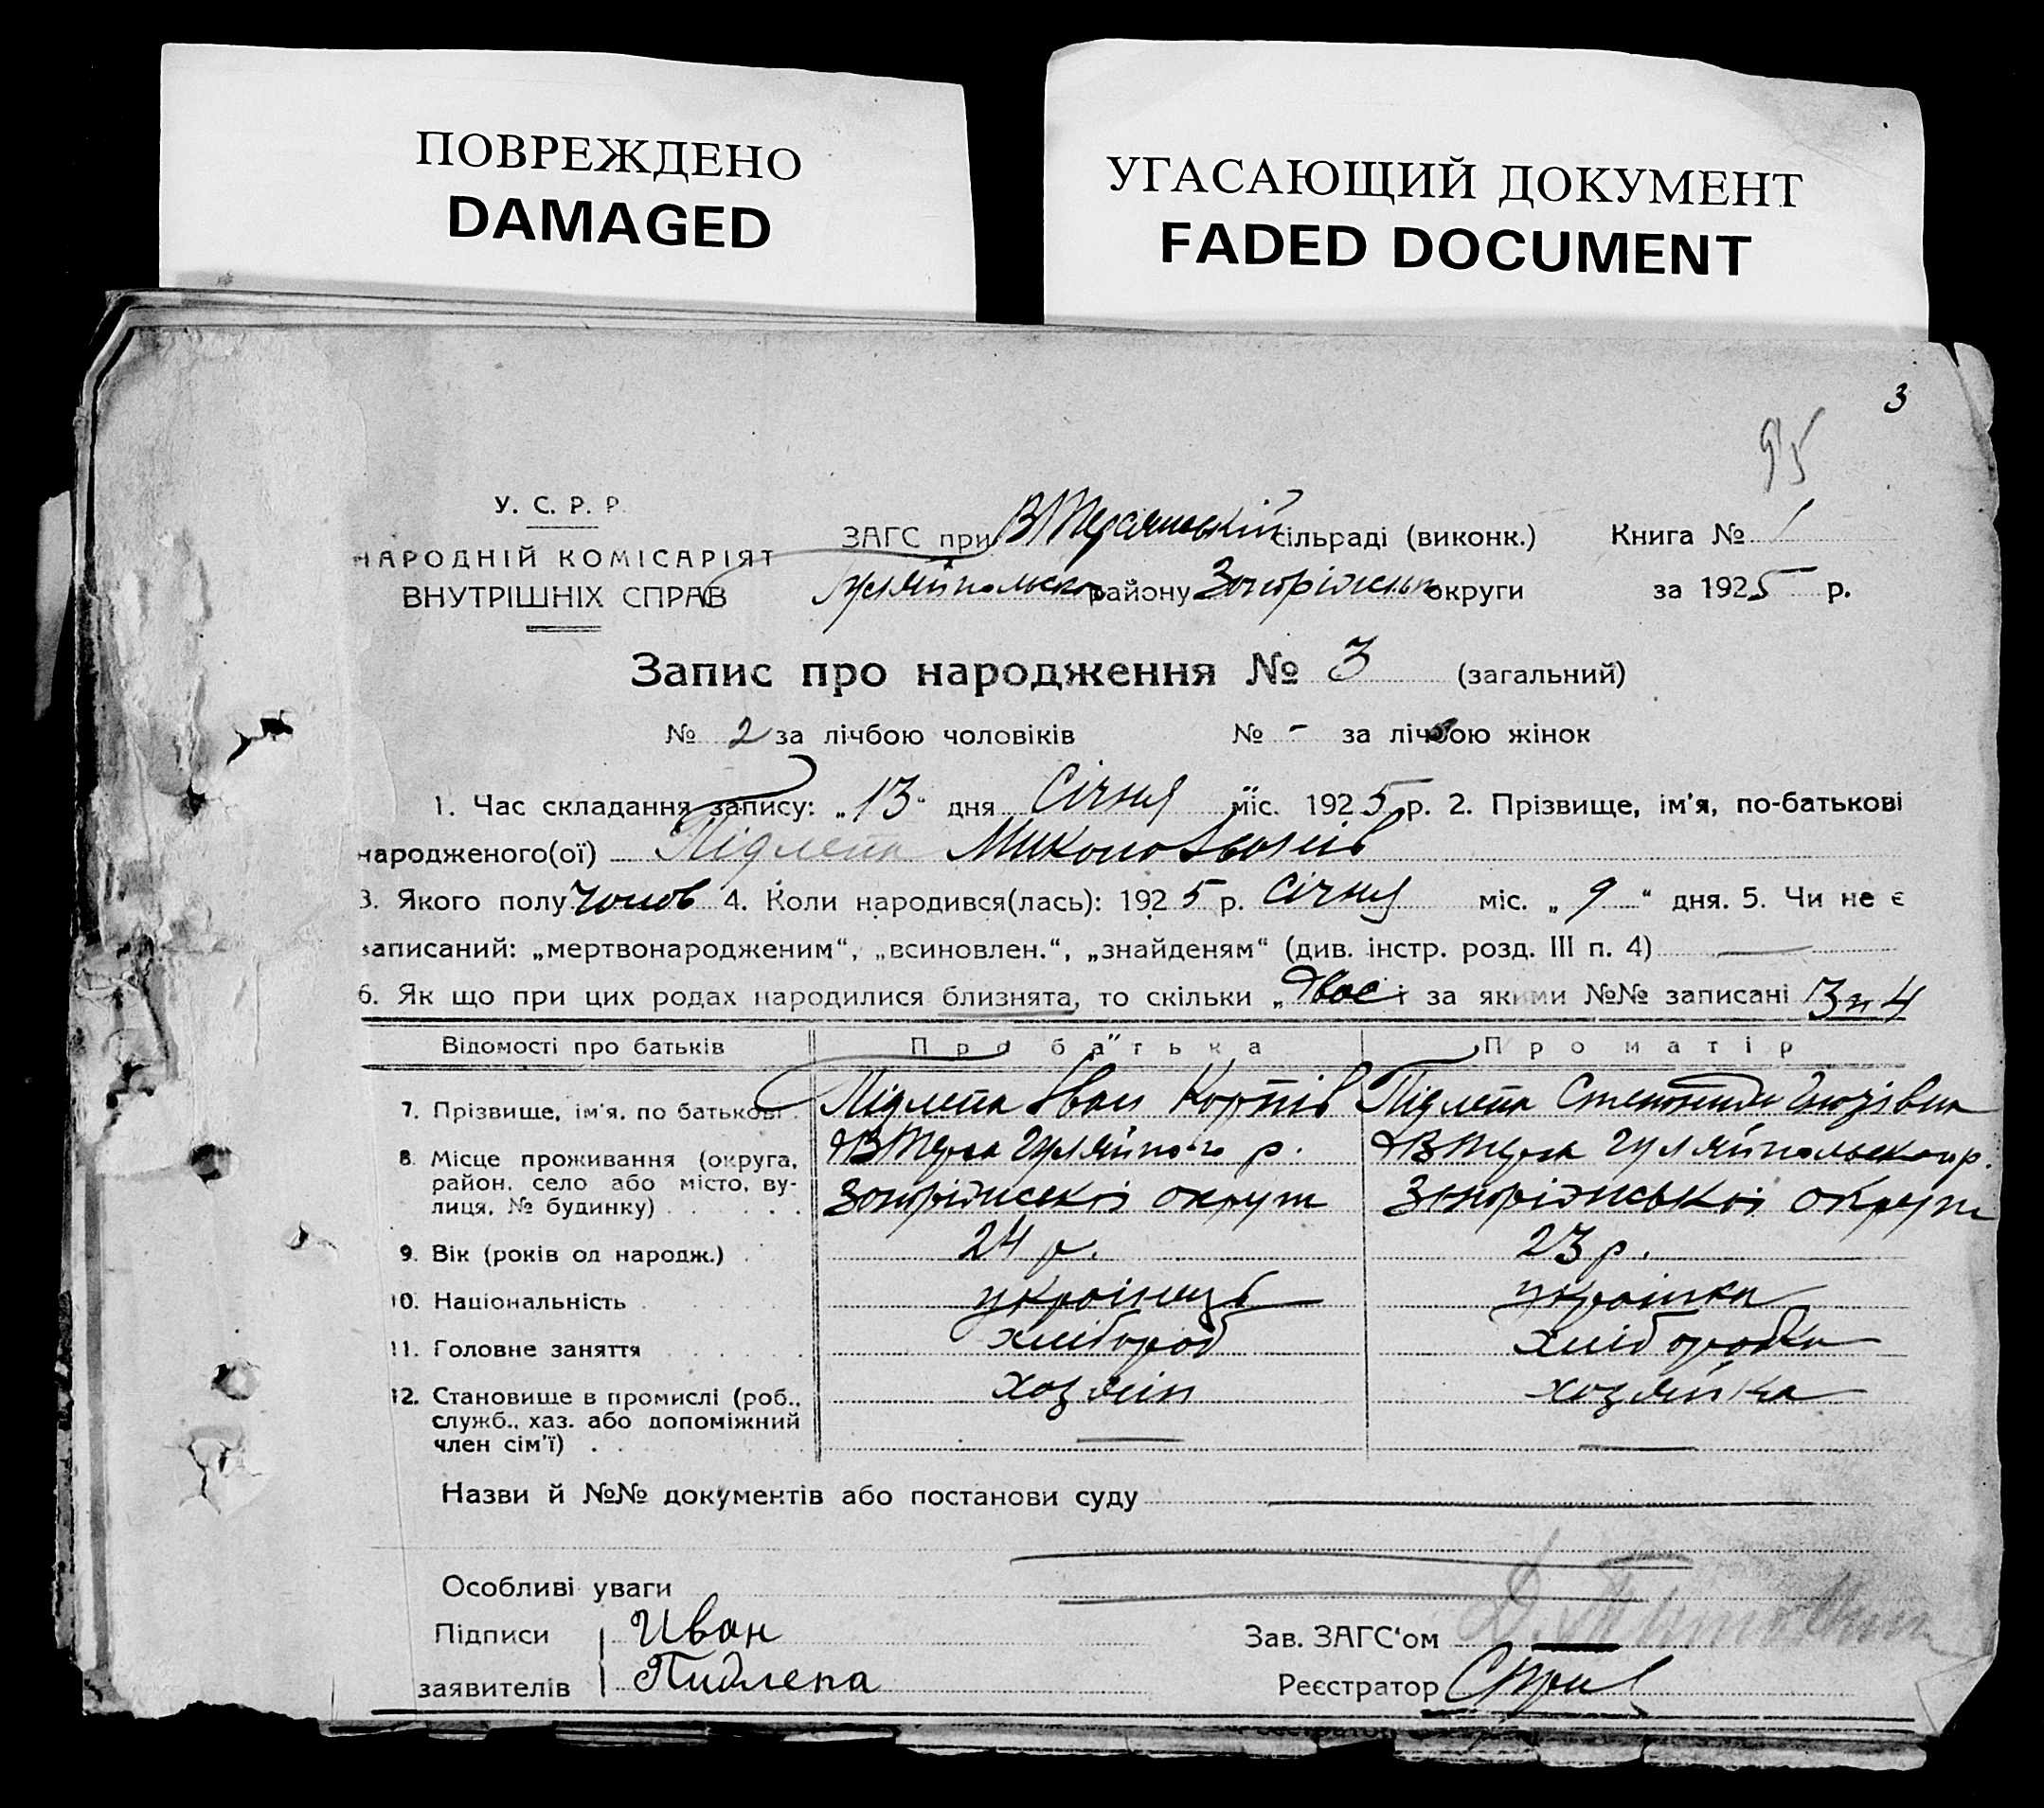 ПОВРЕЖДЕНО
DAMAGED
УГАСАЮЩИЙ ДОКУМЕНТ
FADED DOCUMENT
3
95
У. С. Р. Р.
НАРОДНІЙ КОМІСАРІЯТ
ВНУТРІШНІХ СПРАВ
ЗАГС при сільраді (виконк.)
району округи
Книга № 1
за 1925 р.
Запис про народження № 3 (загальний)
№ 2 за лічбою чоловіків № - за лічбою жінок
1. Час складання запису: „13“ дня Січня міс. 1925 р. 2. Прізвище, ім'я, по-батькові
народженого(ої) Підлепа Микола Іванів
3. Якого полу чолов 4. Коли народився(лась): 1925 р. Січня міс. „9“ дня. 5. Чи не є
записаний: „мертвонародженим“, „всиновлен.“, „знайденям“ (див. інстр. розд. III п. 4)
6. Як що при цих родах народилися близнята, то скільки „двоє і за якими №№ записані 3 и 4
Відомості про батьків Про батька Про матір
7. Прізвище, ім'я, по батькові Підлепа Іван Підлепа
8. Місце проживання (округа,
район, село або місто, ву-
лиця, № будинку) округи округи
9. Вік (років од народж.) 24 р. 23 р.
10. Національність українець українка
11. Головне заняття хлібороб хліборобка
12. Становище в промислі (роб.,
служб., хаз. або допоміжний
член сім'ї) хозяін хозяйка
Назви й №№ документів або постанови суду
Особливі уваги
Підписи
заявителів
Иван
Пидлепа
Зав. ЗАГС'ом
Реєстратор